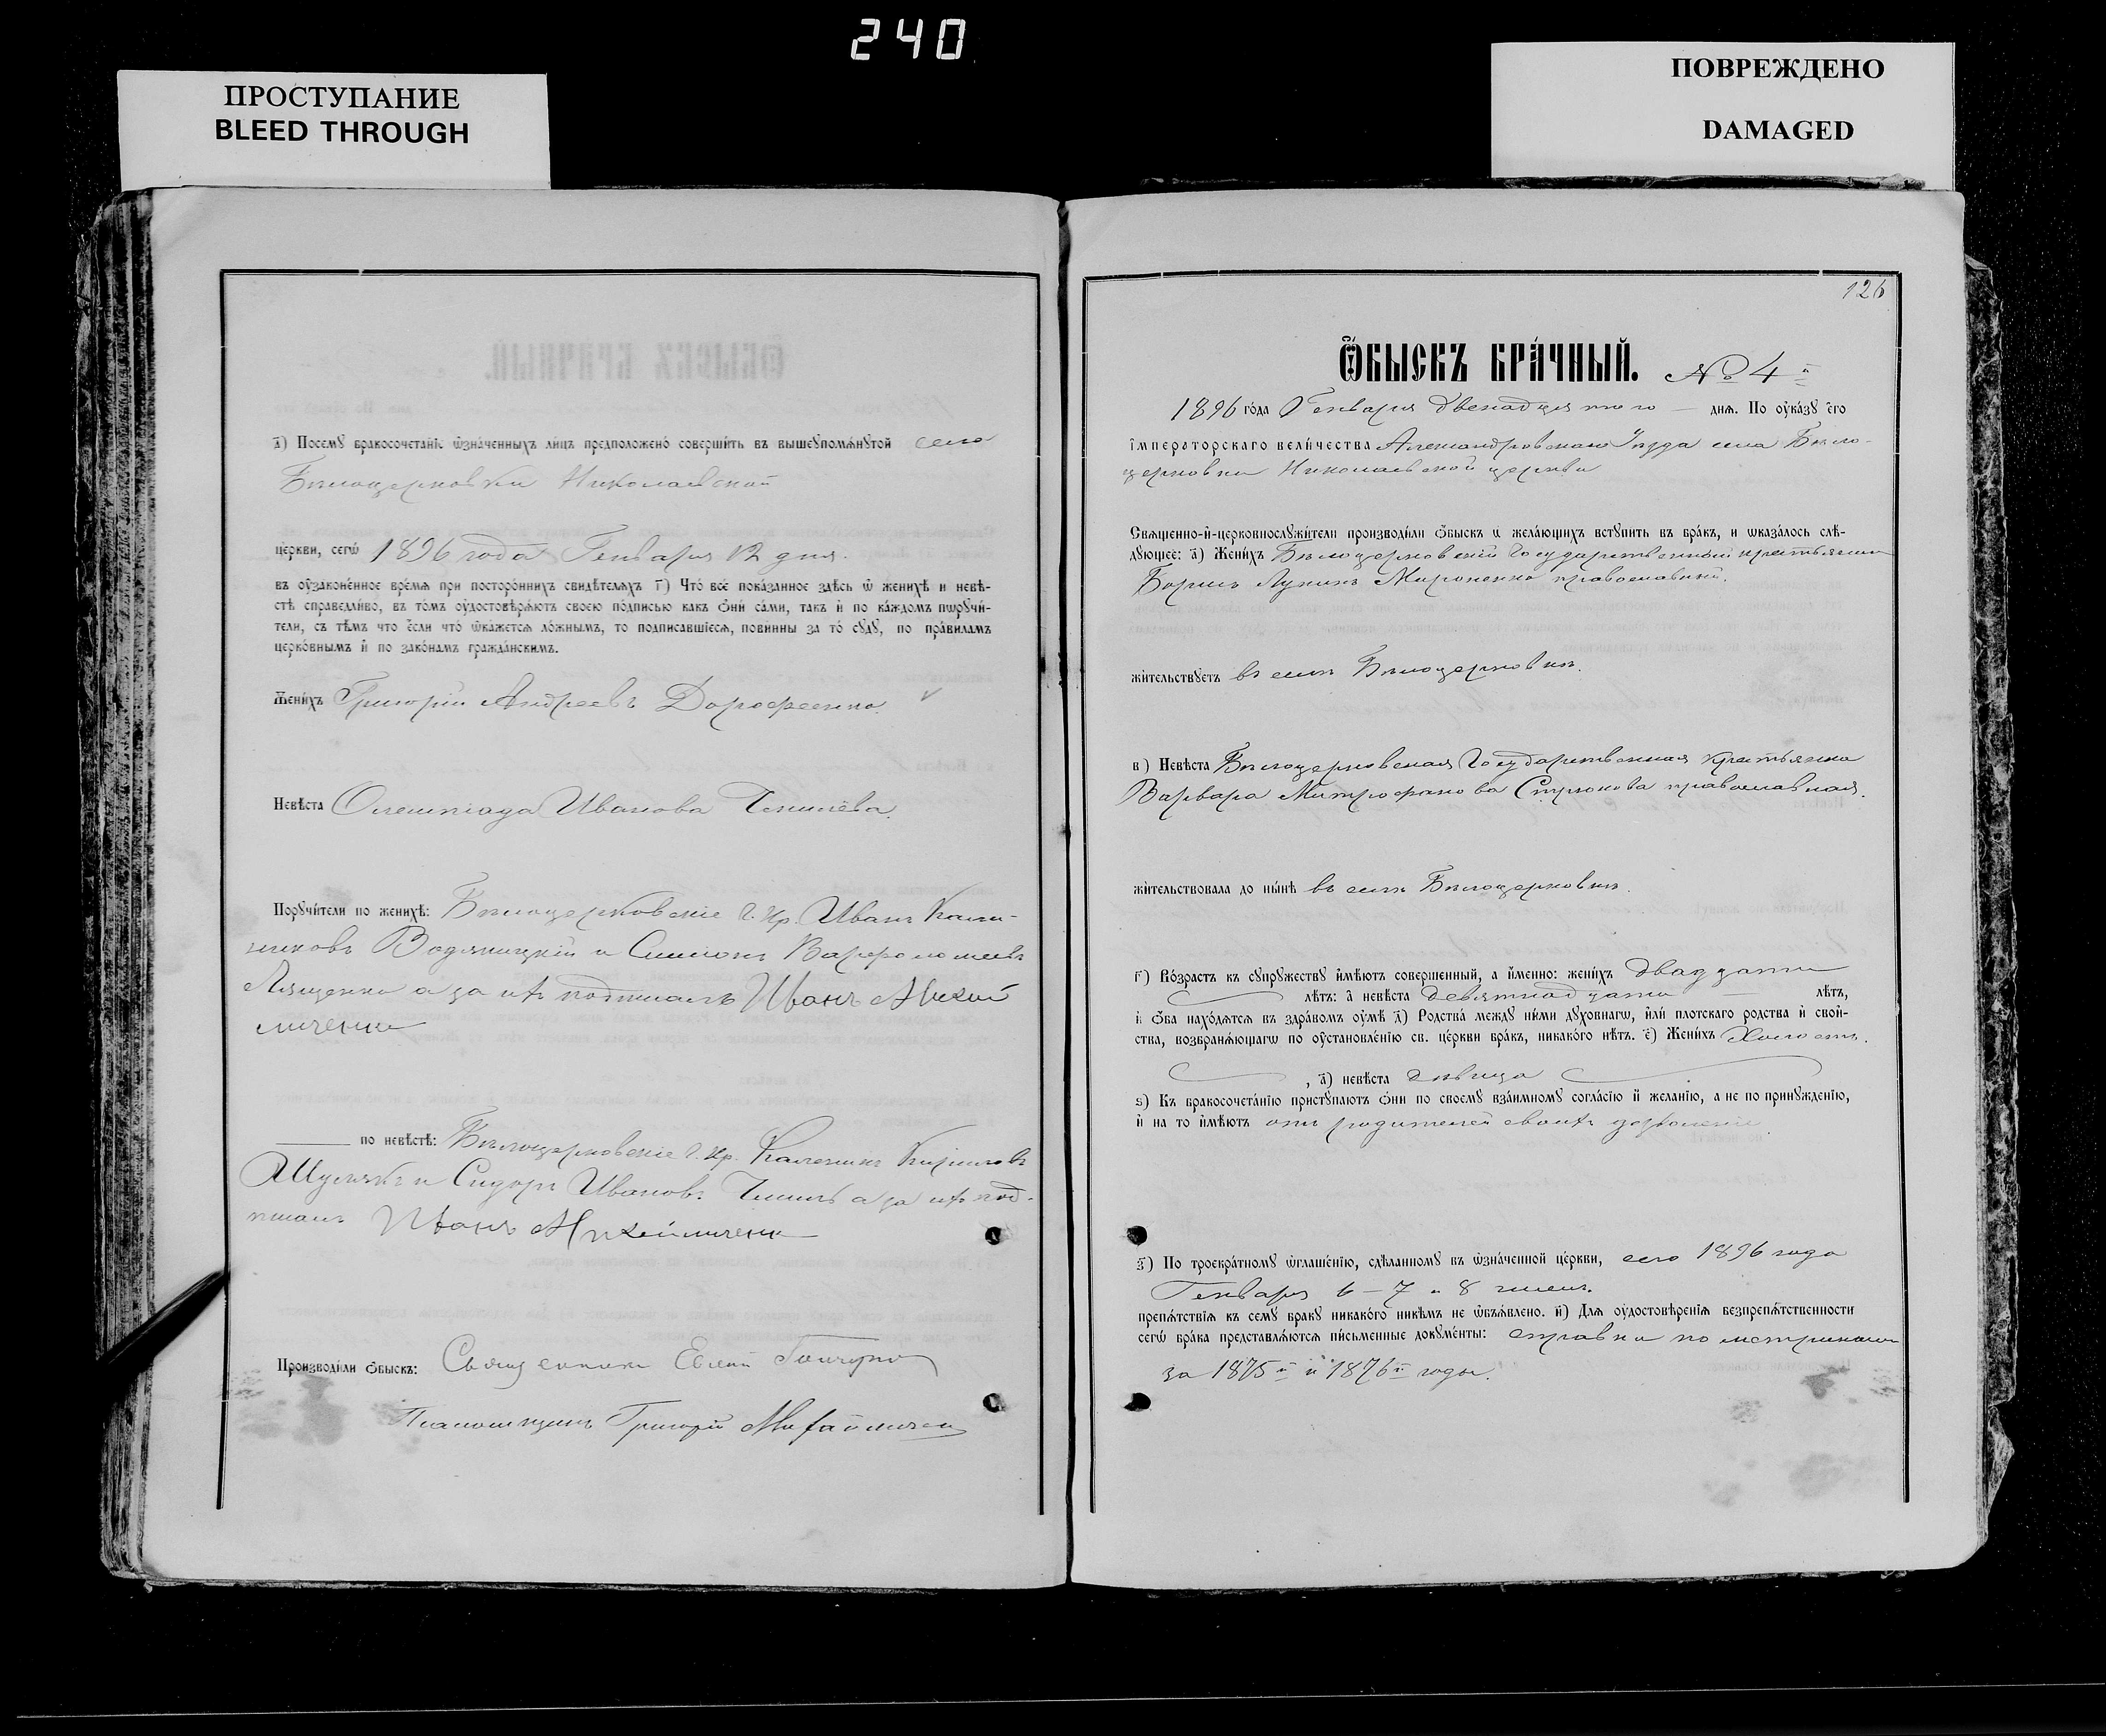 240
ПРОСТУПАНИЕ
BLEED THROUGH
ПОВРЕЖДЕНО
DAMAGED
а҃) Посемꙋ бракосочетаніе ѡзначенныхъ лицъ предположено совершить въ вышеꙋпомѧнꙋтой села
Бѣлоцерковки Николаевской
церкви, сегѡ 1896 года Генваря 12 дня.
въ оу҆законенное времѧ при постороннихъ свидѣтелѧхъ г҃) Что все показанное здѣсь ѡ женихѣ и невѣ-
стѣ справедливо, въ томъ оу҆достовѣрѧютъ своею подписью какъ Ѻни сами, такъ и по каждомъ пѡрꙋчи-
тели, съ тѣмъ что если что ѡкажетсѧ ложнымъ, то подписавшіесѧ, повинны за то сꙋдꙋ, по правиламъ
церковнымъ и по законамъ гражданскимъ.
Женихъ Григорій Андреевъ Дорофеенко
Невѣста Олемпіада Иванова
Порꙋчители по женихѣ: Бѣлоцерковскіе г. кр. Иванъ
Водяницкій и Симіонъ Варфоломеевъ
Лященко а за ихъ подписалъ Иванъ Михай
личенко
по невѣстѣ: Бѣлоцерковскіе г. кр. Каленикъ Кириловъ
Шулякъ и Сидоръ Ивановъ а за ихъ под-
писалъ Иванъ Михайличенко
Производили Ѻбыскъ: Священникъ Евгеній
Псаломщикъ Григорій Михайличенко
126
Ѻбыскъ брачный. № 4й
1896 года Генваря двенадцятого дня. По оу҆казꙋ Его
Императорскаго величества Александровскаго Уѣзда села Бѣло-
церковки Николаевской церкви
Священно-и-церковнослꙋжители производили Ѻбыскъ ѡ желающихъ встꙋпить въ бракъ, и ѡказалось слѣ-
дꙋющее: а҃) Женихъ Бѣлоцерковскій Государственный крестьянинъ
Борисъ Лукинъ Мироненко православный.
жительствꙋетъ въ селѣ Бѣлоцерковкѣ.
в) Невѣста Бѣлоцерковская Государственная крестьянка
Варвара Митрофанова Стрюкова православная.
жительствовала до нынѣ въ селѣ Бѣлоцерковкѣ.
г҃) Возрастъ къ сꙋпрꙋжествꙋ имѣютъ совершенный, а именно: женихъ двадцати
лѣтъ: а невѣста девятнадцати лѣтъ,
и Ѻба находѧтсѧ въ здравомъ оу҆мѣ д҃) Родства междꙋ ними дꙋховнагѡ, или плотскаго родства и свой-
ства, возбранѧющагѡ по оу҆становленію св. церкви бракъ, никакого нѣтъ. е҃) Женихъ Холостъ.
, а҃) невѣста дѣвица
ѕ) Къ бракосочетанію пристꙋпаютъ Ѻни по своемꙋ взаимномꙋ согласію и желанію, а не по принꙋжденію,
и на то имѣютъ отъ родителей своихъ дозволеніе.
з҃) По троекратномꙋ ѡглашенію, сдѣланномꙋ въ ѡзначенной церкви, сего 1896 года
Генваря 6 – 7 и 8 чиселъ.
препѧтствіѧ къ семꙋ бракꙋ никакого никѣмъ не ѡбъѧвлено. и҃) Длѧ оу҆достовѣреніѧ безпрепѧтственности
сегѡ брака представлѧютсѧ письменные докꙋменты: справки по метрикамъ
за 1875й и 1876й годы.